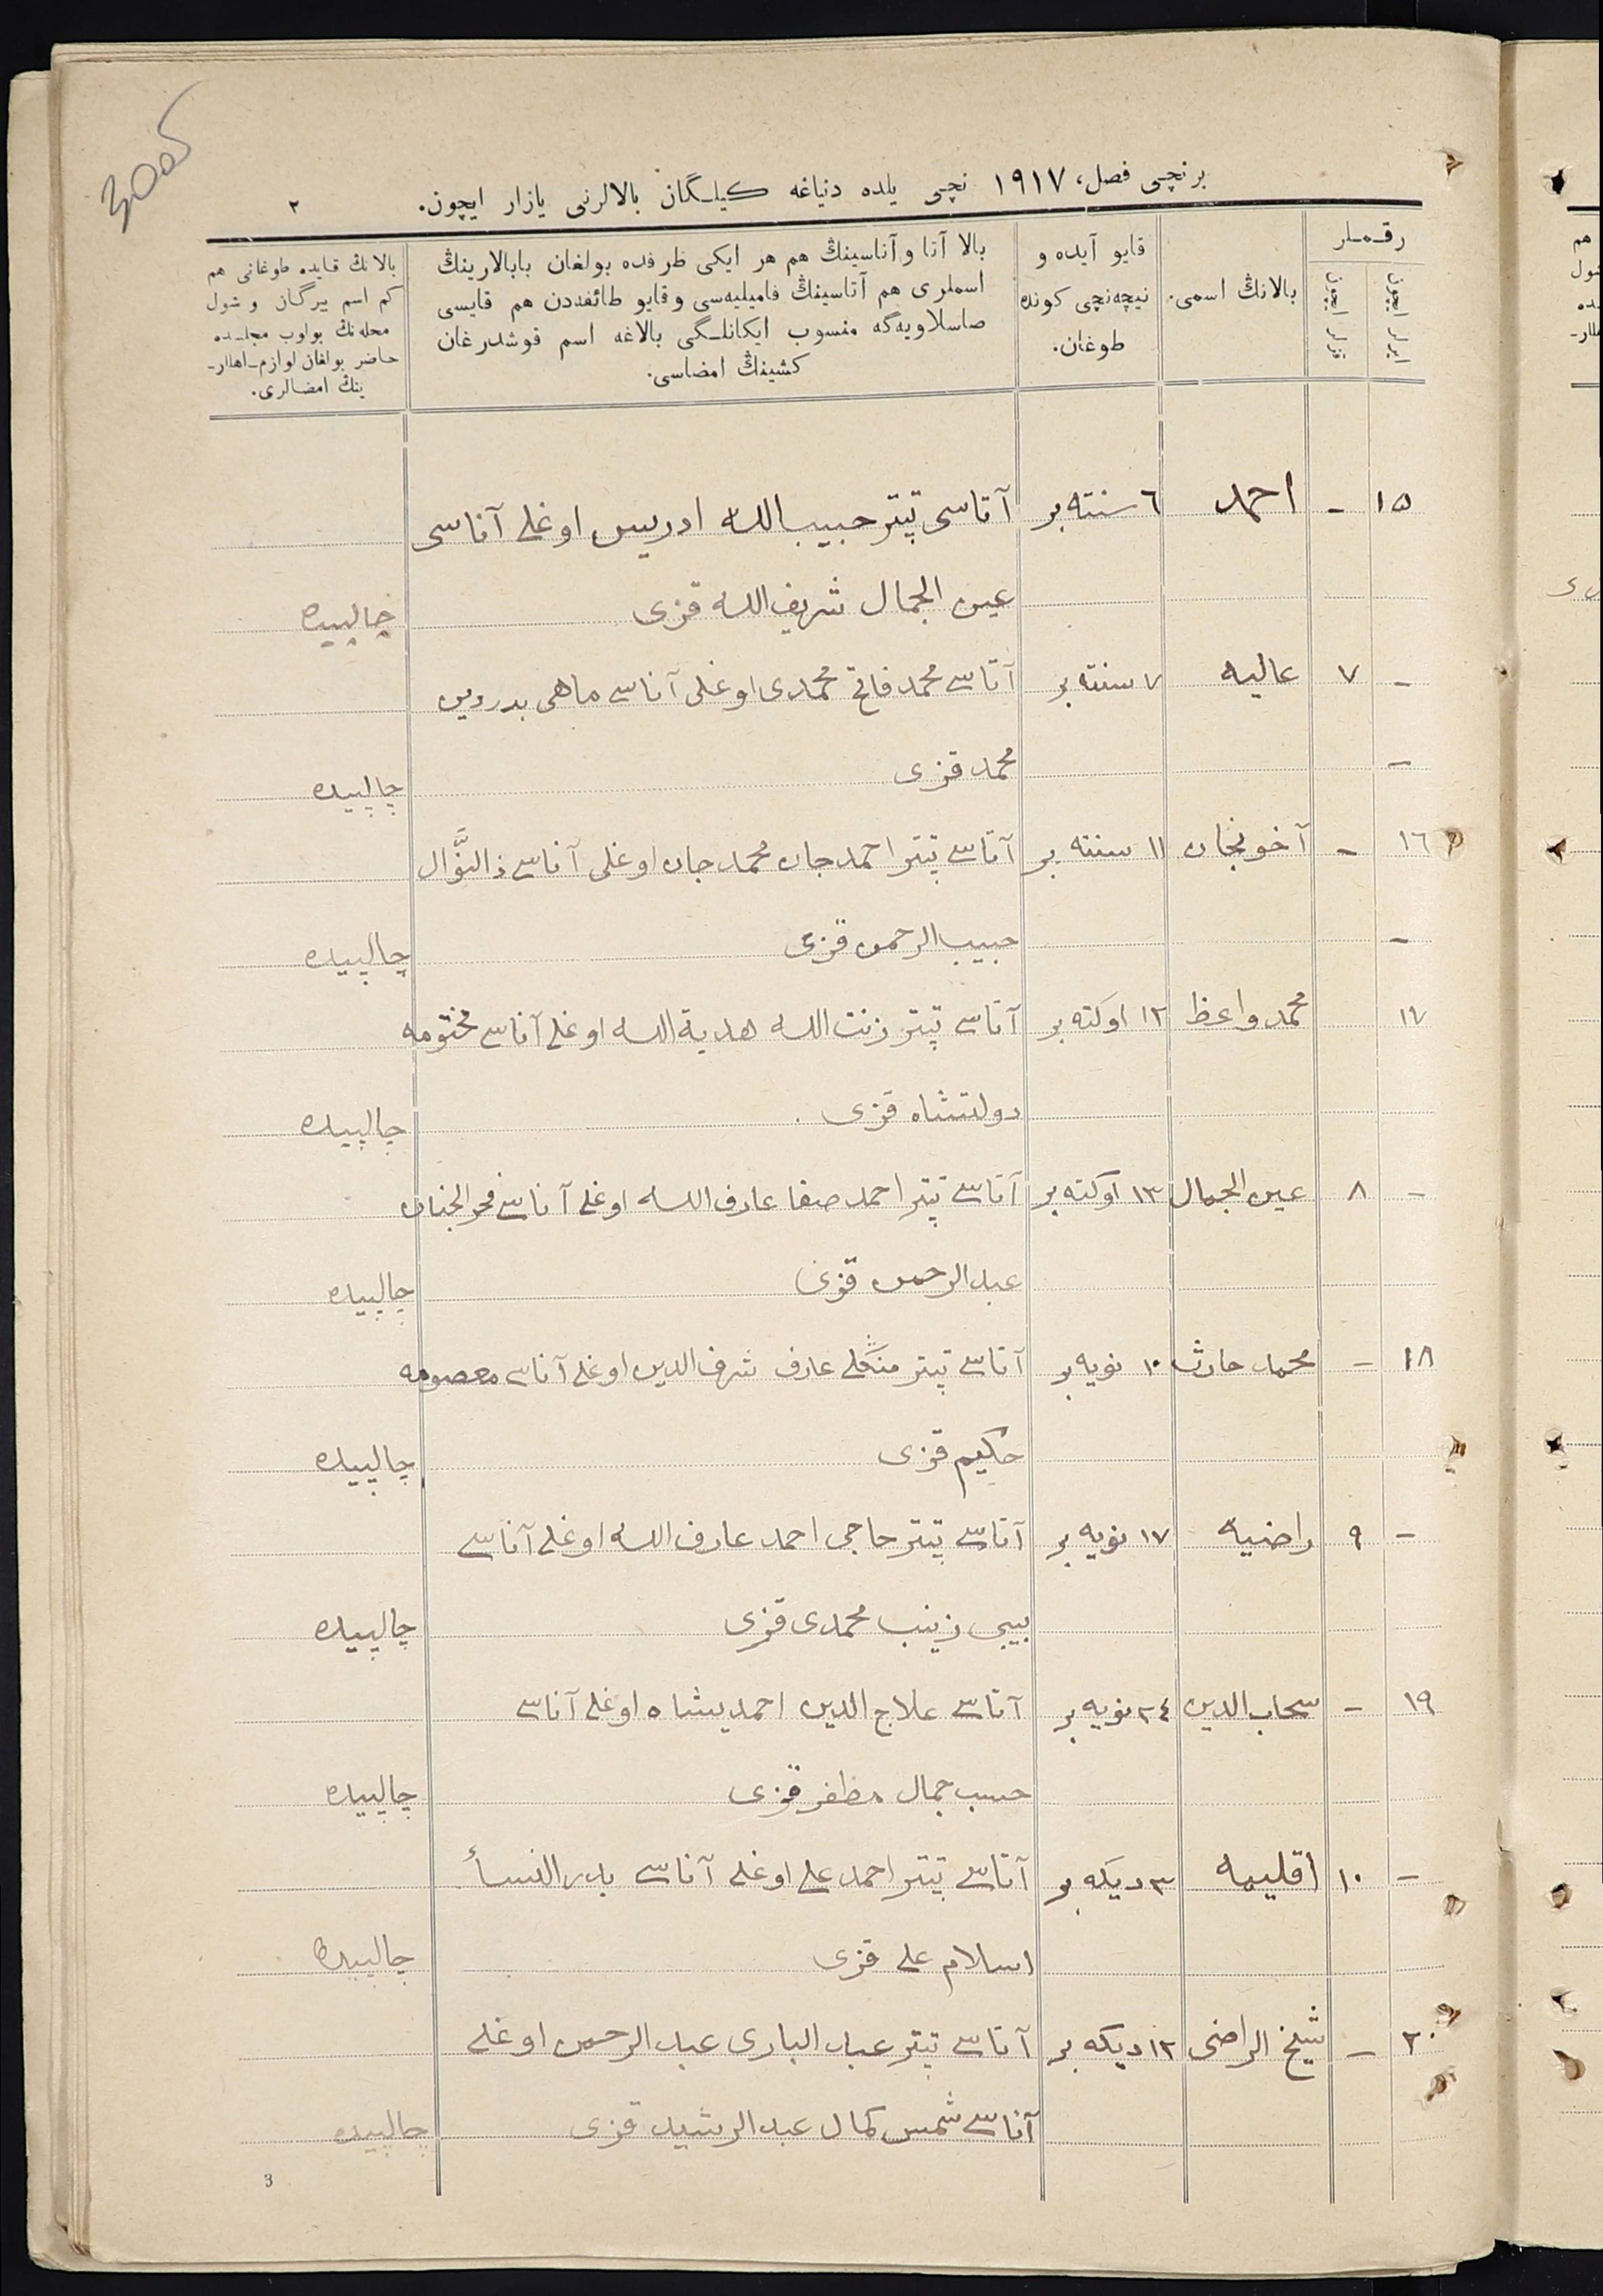 3005
برنچی فصل، ١٩١٧ نچی یلده دنیاغه کیلگان بالالرنی یازار ایچون.
٢
رقملر
ایرلر ایچون
قزلر ایچون
بالانڭ اسمی.
قایو آیده و
نیچه‌نچی کونده
طوغان.
بالا آتا و آناسینڭ هم هر ایکی طرفده بولغان بابالارینڭ
اسملری هم آتاسینڭ فامیلیه‌سی و قایو طائفه‌دن هم قایسی
صاسلاویه‌گه منسوب ایکانلگی بالاغه اسم قوشدرغان
کشینڭ امضاسی.
بالانڭ قایده طوغانی هم
کم اسم بیرگان و شول
محله‌نڭ بولوب مجلسده
حاضر بولغان لوازم-اهللر-
ینڭ امضالری.
١٥ - احمد ٦ سنته‌بر آتاسی تپتر حبیب الله ادریس اوغلی آناسی
عین الجمال شریف الله قزی چالپیده
- ٧ عالیه ٧ سنته‌بر آتاسی محمد فاتح محمدی اوغلی آناسی ماهی بدر
- محمد قزی چالپیده
١٦ - آخونجان ١١ سنته بر آتاسی تپتر احمد جان محمد جان اوغلی آناسی
- حبیب الرحمن قزی چالپیده
١٧ محمد واعظ ١٢ اوکته بر آتاسی تپتر زنت الله هدیة الله اوغلی آناسی مختومه
دولتشاه قزی چالپیده
- ٨ عین الجمال ١٣ اوکته بر آتاسی تپتر احمد صفا عارف الله اوغلی آناسی فخر الجنان
عبد الرحمن قزی چالپیده
١٨ - محمد حارث ١٠ نویه بر آتاسی تپتر منڭلی عارف شرف الدین اوغلی آناسی معصومه
حکیم قزی چالپیده
- ٩ راضیه ١٧ نویه بر آتاسی تپتر حاجی احمد عارف الله اوغلی آناسی
بیبی زینب محمدی قزی چالپیده
١٩ - سحاب الدین ٢٤ نویه بر آتاسی علاج الدین احمدیشاه اوغلی آناسی
حبیب جمال مظفر قزی چالپیده
- ١٠ اقلیمه ٣ دیکه بر آتاسی تپتر احمد علی اوغلی آناسی بدر النسأ
اسلام علی قزی چالپیده
٢٠ - شیخ الراضی ١٢ دیکه بر آتاسی تپتر عبد الباری عبد الرحمن اوغلی
آناسی شمس کمال عبد الرشید قزی چالپیده
3